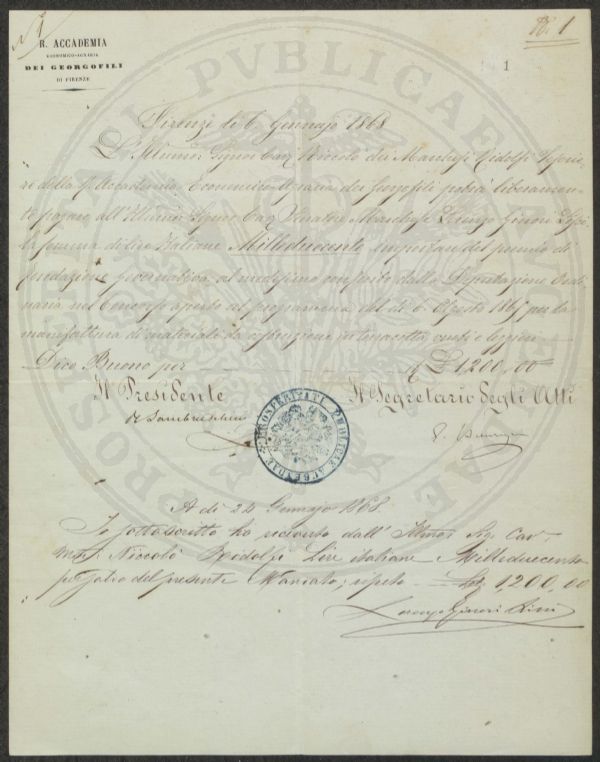 N. 1
R. ACCADEMIA
ECONOMICO-AGRARIA
DEI GEORGOFILI
DI FIRENZE
1
Firenze li 6. Gennajo 1868
L'Illumo: Signor Cav. Niccolò dei Marchesi Ridolfi
della R. Accademia Economico Agraria dei Georgofili potrà liberamen-
te pagare all'Illumo Signor Cav. Senatore Marchese Lorenzo Ginori
la somma di lire Italiane Milleduecento importare del premio di
fondazione governativa al medesimo conferito dalla Deputazione Ordi-
naria nel Concorso aperto col programma del dì 6. Agosto 1865 per la
manifattura di materiale da costruzione in terracotta, vuoti e leggeri
Dico Buono per £ 1200,00
Il Presidente
Il Segretario Degli Atti
PROSPERITATI PUBLICAE AUGENDAE
A dì 24 Gennajo 1868
Io sottoscritto ho ricevuto dall' Illmo Sig. Cav
Niccolò Ridolfi Lire italiane Milleduecento
per saldo del presente Mandato; ripeto 1,200,00
Lorenzo Ginori Lisci